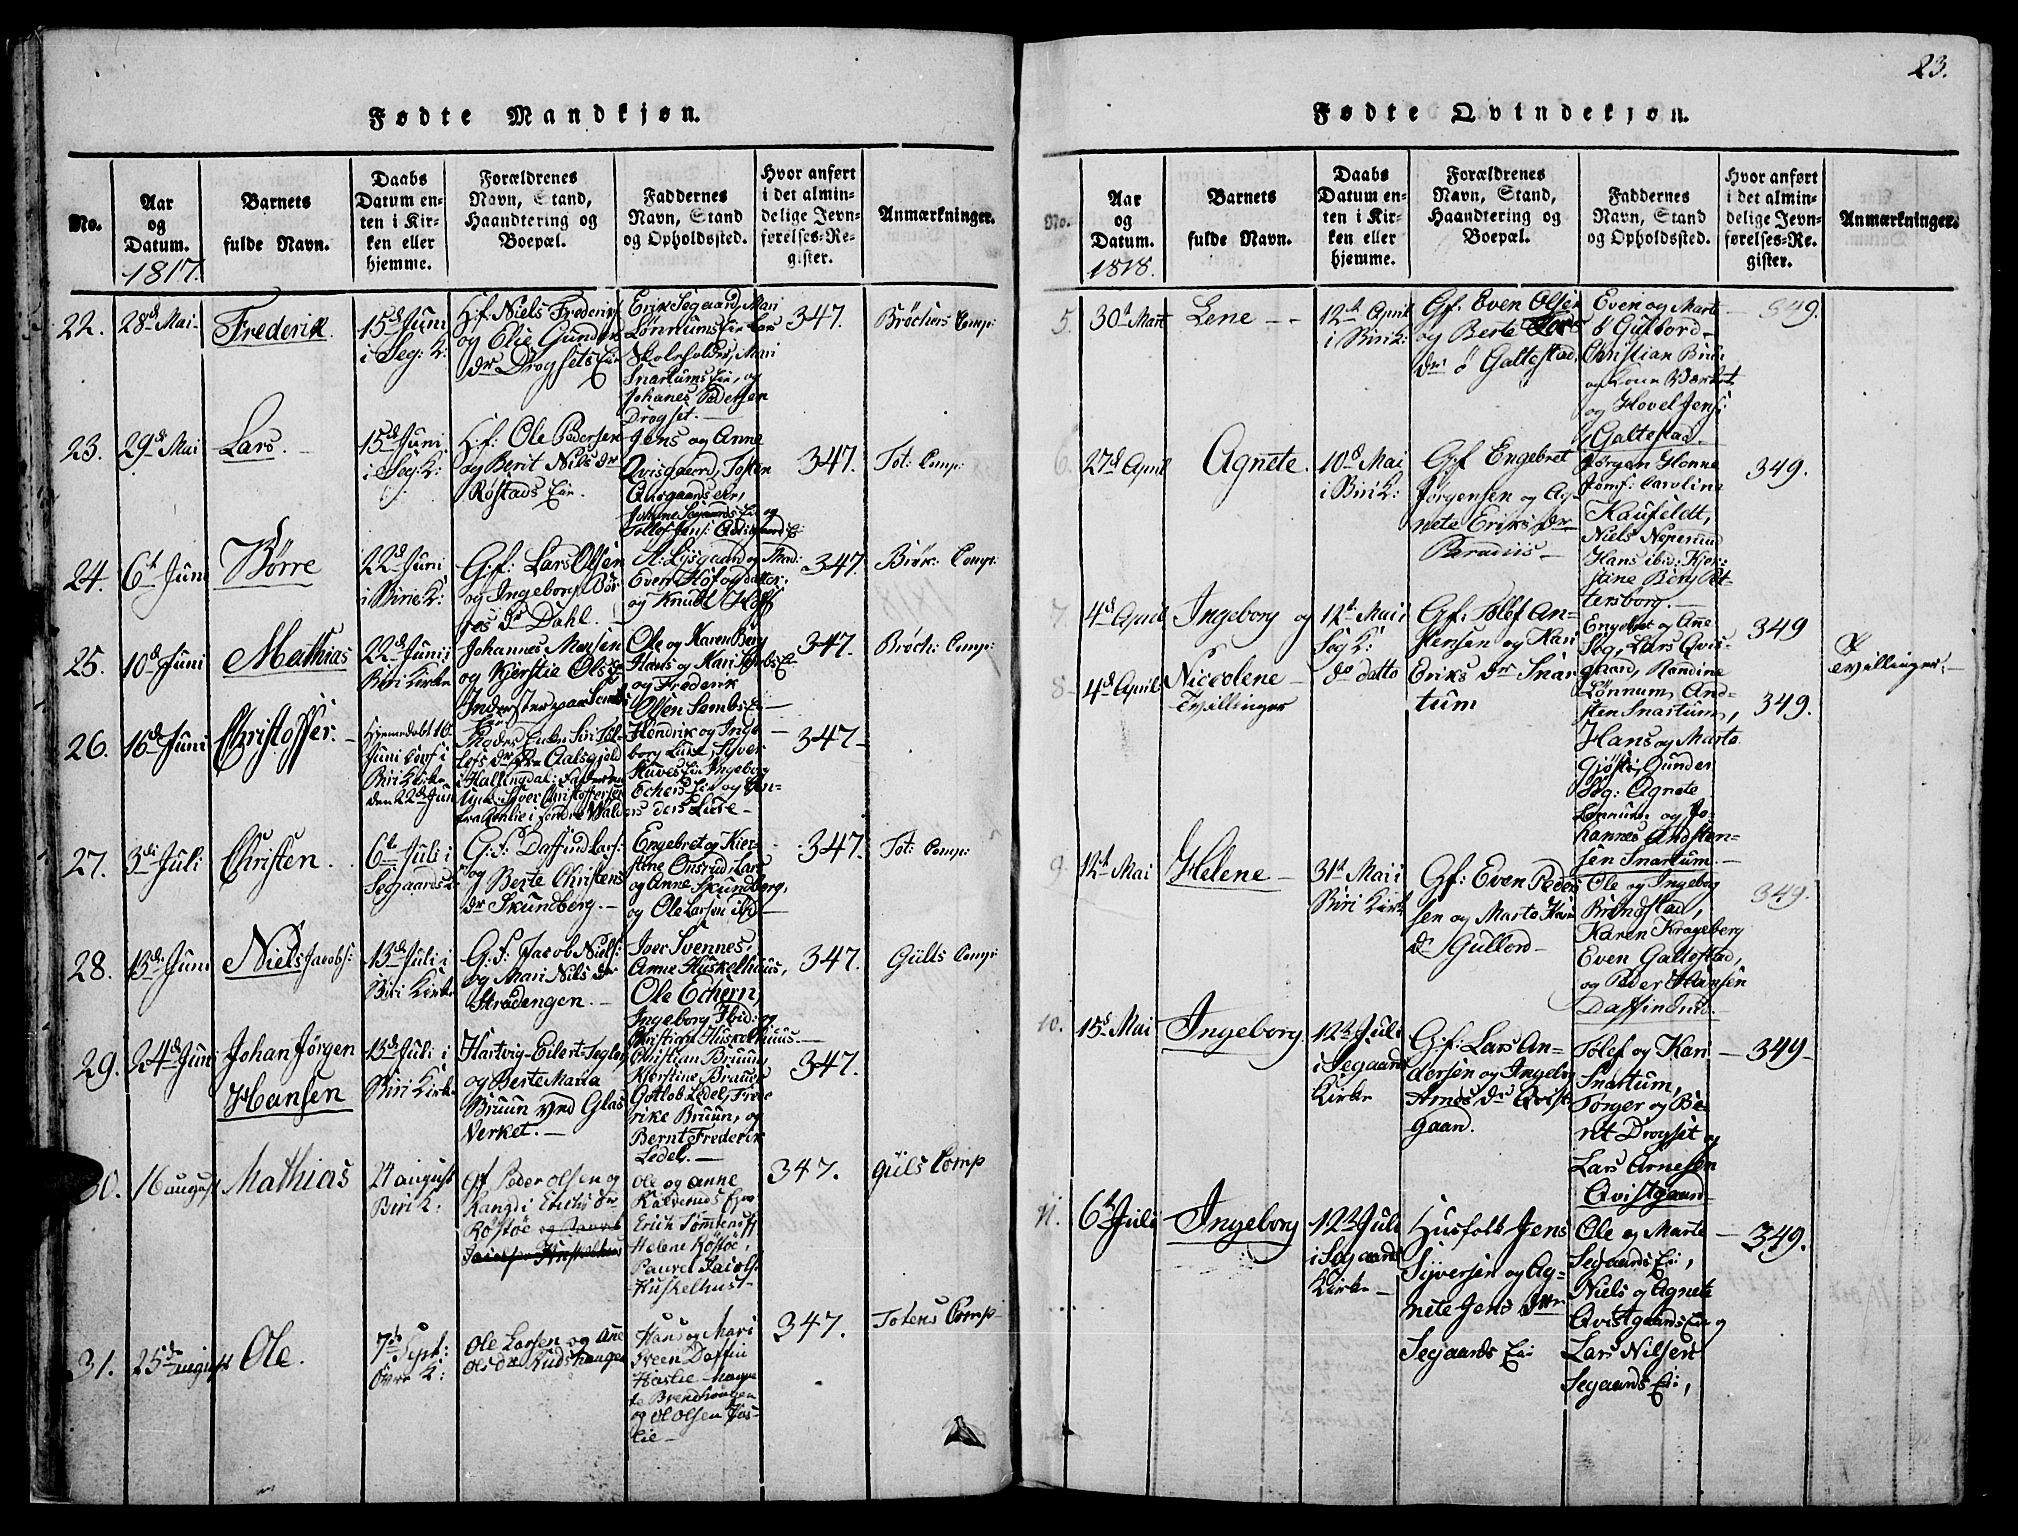 Fødte Mandkjøn.
No.
Aar
og
Datum.
1817.
Barnets
fulde Navn.
Daabs
Datum en-
ten i Kir-
ken eller
hjemme.
Forældrenes
Navn, Stand,
Haandtering og
Boepæl.
Faddernes
Navn, Stand
og Opholdssted.
Hvor anført
i det almin-
delige Jevn-
førelses-Re-
gister.
Anmærkninger.
22.
28d Mai
Frederik
15d Juni
i Seg: K:
Hf: Niels Frederichs
og Elie Gunder
dr Drogsets Eie
Erik Segaard, Mari
Lønnums Eie Lars
Skoleholder, Mari
Snartums Eie, og
Johanes Pedersen
Drogset.
347.
Brøchers Comp:
23.
29d Mai
Lars.
15d Juni
i Seg: K:
Hf: Ole Pedersen
og Berit Niels dr
Røstads Eie.
Jens og Anne
Qvisgaard, Tosten
347.
Tot: Comp:
24.
6t Juni
Børre
22d Juni
i Biri K:
G:f: Lars Olsen
og Ingeborg Bør
res dr Dahl.
A: Lysgaard og Mad:
Even Hof og datter,
og Knud Hoff
347.
Brøk: Comp:
25.
10d Juni
Mathias
22d Juni i
Biri Kirke
Johannes Monsen
og Kierstie Ols dr
Inderster paa Sembs
Eie
Ole og Karen Berg
Hans og Mari Sembs Ei
og Frederik
Olsen Sembs Ei
347.
Brøch: Comp:
26.
16d Juni
Christoffer.
Hjemmedøbt 16
Juni Conf: i
Biri Kirke
den 22d Jun
i Hallingdal: Faderen
Hendrik og Inge
borg Lure, Syver
Huves Eie Ingeborg
Echers Eie og An-
ders Lure
347
27.
3die Juli
Christen
6t Juli i
Segaards K:
G:f: Daffind Lars:
og Berte Christens
dr Skundberg.
Engebret og Kier-
stine Onsrud, Lars
og Anne Skundberg,
og Ole Larsen ibid
347.
Tot: Comp:
28.
13de Juni
Niels Jacobs:
13d Juli i
Biri Kirke
G:f: Jacob Niels:
og Mari Nils dr
Strædengen.
Iver Svennes,
Anne Huskelhuus,
Ole Echern,
Ingeborg Ibid: og
Christian Huskelhuus
347.
Gülls Comp:
29.
24d Juni
Johan Jørgen
Hansen
13d Juli i
Biri Kirke
Hartvig Eilert Segler
og Berte Maria
Bruun ved Glas
Verket.
Christian Bruun,
Kjerstine Brauer
Gotlob Ledel, Frede
rike Bruun, og
Bernt Frederik
Ledel.
347.
30.
16 august
Mathias
24 august
Biri K:
gf Peder olsen og
Rangdi Erichs dr
Røstøe
ole og anne
Erich Sømmenst
Helene Røstøe,
Huskelhust
347.
Güls Comp
31.
25de august
Ole.
7de Sept:
Øvre K:
Ole Larsen og Ane
Ols dr Rudshaugen
Hans og Mari
Sveen Daffin
Haslie
og ol olsen Has-
lie
347.
Totens Comp
23.
Fødte Qvindekjøn.
No.
Aar
og
Datum.
1818.
Barnets
fulde Navn.
Daabs
Datum en-
ten i Kir-
ken eller
hjemme.
Forældrenes
Navn, Stand,
Haandtering og
Boepæl.
Faddernes
Navn, Stand
og Opholdssted.
Hvor anført
i det almin-
delige Jevn-
førelses-Re-
gister.
Anmærkninger.
5.
30t Mart
Lene
12t April
i Biri K:
Gf: Even Olsen
og Berte
dr ö Galtestad
Even og Marte
ö Gulbord
Christian Biri
og Hovel Jens:
Galtestad.
349.
6.
27d April
Agnete.
10d Mai
i Biri K:
Gf Engebret
Jørgensen og Ag
nete Eriks dr
Paradiis
Jørgen Honne
Jomf: Caroline
Kaufeldt,
Niels Neperud
Hans ibid: Kjer-
stine Berg Pet-
tersborg.
349.
7.
4d April
Ingeborg og
12t Mai i
Seg K:
Gf: Tolef An-
stensen og Kari
Eriks dr Snar
tum
Engebret og Ane
Seg, Lars Qvis-
gaard, Randine
Lønnum, And-
sten Snartum,
Hans og Marte
Gjøsti, Gunder
Seg: Agnete
Lønnum og Jo-
hannes Andsten-
sen Snartum.
349
Tvillinger.
8
4d April
Niccolene
Tvillinger
do datto
349.
9.
12t Mai
Helene
31t Mai i
Biri Kirke
Gf: Even Peder
sen og Marte
dr Gullord
Ole og Ingeborg
Bringstad,
Karen Krageberg
Even Galtestad,
og Peder Hansen
Daffindrud.
349.
10.
15d Mai
Ingeborg
12te Juli
i Segaards
Kirke
Gf: Lars An-
dersen og Ingebor
Arnes dr Qvist
gaard.
Tolef og Kari
Snartum,
Torger og Be-
rit Drogset og
Lars Arnesen
Qvistgaard
349
11.
6te Juli
Ingeborg
12te Juli
i Segaards
Kirke
Husfolk Jens
Syversen og Ag-
nete Jens dtr
Segaards Eie
Ole og Marte
Segaards Ei,
Niels og Agnete
Qvistgaards Eie og
Lars Nilsen
Segaards Ei,
349.